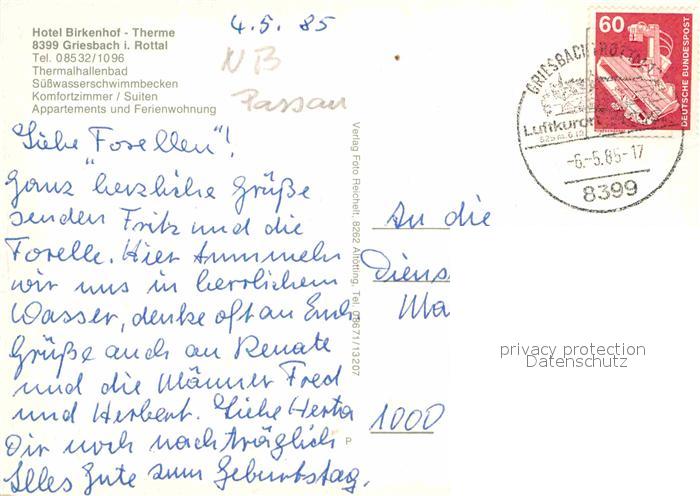 4.5.85
Hotel Birkenhof - Therme
8399 Griesbach i. Rottal
Tel. 08532/1096
Thermalhallenbad
Süßwasserschwimmbecken
Komfortzimmer / Suiten
Appartements und Ferienwohnung
NB
Passau
Liebe "Forellen"!
Ganz herzliche Grüße
senden Fritz und die
Forelle. Hier tummeln
wir uns in herrlichem
Wasser, denke oft an Euch
Grüße auch an Renate
und die Männer Fred
und Herbert. Liebe Herta
Dir noch nachträglich
Alles Gute zum Geburtstag.
Verlag Foto Reichelt, 8262 Altötting, Tel. 08671/13207
P
An die
Diens
Ma
1000
60
DEUTSCHE BUNDESPOST
GRIESBACH I ROTTAL
Luftkurort
-6.-5.85-17
8399
privacy protection
Datenschutz